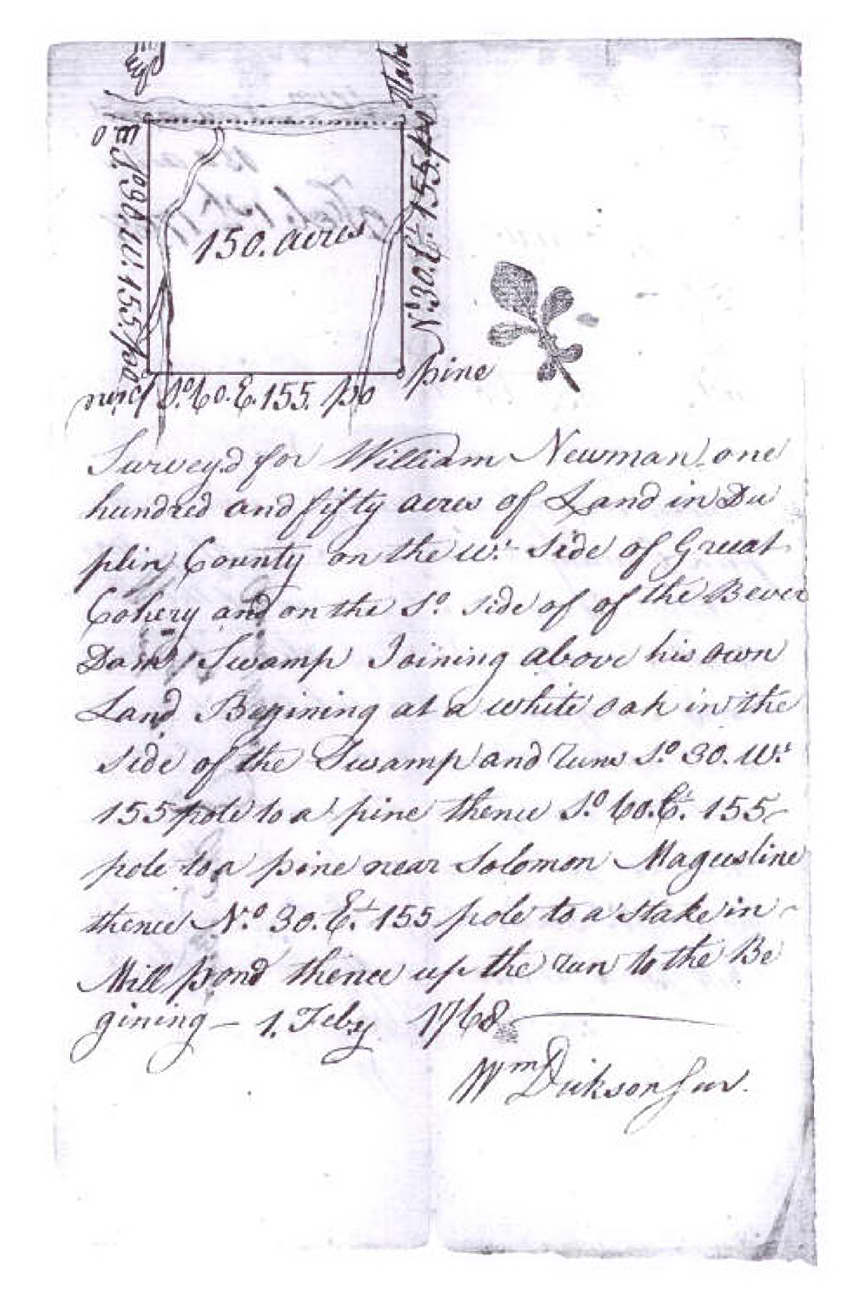 Stake
W. O
So. 30. W. 155. po
150. acres
No. 30. Et. 155. po
pine
pine
So. 60. E. 155. po
Survey'd for William Newman one
hundred and fifty acres of Land in Du
plin County on the Wt. side of Great
Cohery and on the So. side of of the Bever
Dam Swamp Joining above his own
Land Begining at a white oak in the
side of the Swamp and runs So. 30. Wt.
155 pole to a pine thence So. 60. Et. 155
pole to a pine near Solomon Magustine
thence No. 30. Et. 155 pole to a stake in
Mill pond thence up the run to the Be
gining — 1. Feby 1768
Wm Dickson Sur.